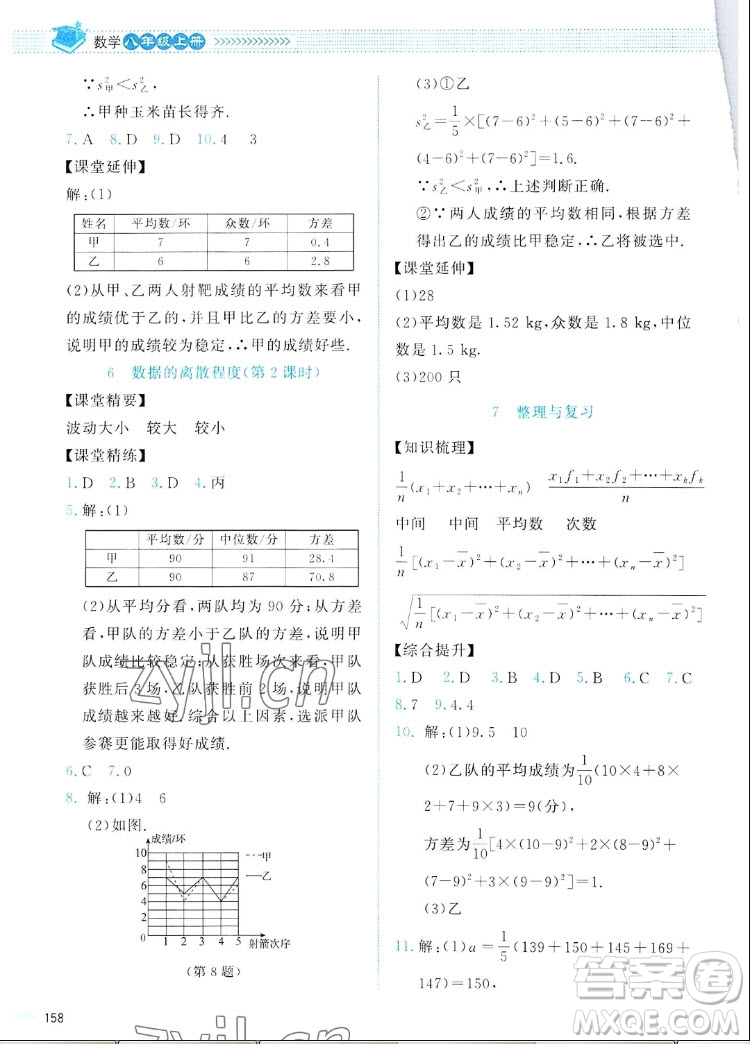 数学八年级上册
∵s²甲<s²乙,
∴甲种玉米苗长得齐.
7.A 8.D 9.D 10.4 3
【课堂延伸】
解:(1)
姓名 平均数/环 众数/环 方差
甲 7 7 0.4
乙 6 6 2.8
(2)从甲、乙两人射靶成绩的平均数来看甲
的成绩优于乙的,并且甲比乙的方差要小,
说明甲的成绩较为稳定,∴甲的成绩好些.
6 数据的离散程度(第2课时)
【课堂精要】
波动大小 较大 较小
【课堂精练】
1.D 2.D 3.D 4.丙
5.解:(1)
平均数/分 中位数/分 方差
甲 90 91 28.4
乙 90 87 70.8
(2)从平均分看,两队均为90分;从方差
看,甲队的方差小于乙队的方差,说明甲
队成绩比较稳定;从获胜场次看,甲队获
胜后3场,乙队获胜前2场,说明甲队的
成绩越来越好.综合以上因素,选派甲队
参赛更能取得好成绩.
6.C 7.0
8.解:(1)4 6
(2)如图.
成绩/环
10
8
6
4
2
0
1 2 3 4 5 射箭次序
甲
乙
(第8题)
158
(3)①乙
s²乙=1/5×[(7-6)²+(5-6)²+(7-6)²+
(4-6)²+(7-6)²]=1.6.
∵s²乙<s²甲,∴上述判断正确.
②∵两人成绩的平均数相同,根据方差
得出乙的成绩比甲稳定,∴乙将被选中.
【课堂延伸】
(1)28
(2)平均数是1.52 kg,众数是1.8 kg,中位
数是1.5 kg.
(3)200只
7 整理与复习
【知识梳理】
1/n(x₁+x₂+…+xₙ) (x₁f₁+x₂f₂+…+xₖfₖ)/n
中间 中间 平均数 次数
1/n[(x₁-x̄)²+(x₂-x̄)²+…+(xₙ-x̄)²]
√(1/n[(x₁-x̄)²+(x₂-x̄)²+…+(xₙ-x̄)²])
【综合提升】
1.D 2.D 3.D 4.B 5.C 6.C 7.C
8.7 9.4.4
10.解:(1)9.5 10
(2)乙队的平均成绩为1/10(10×4+8×
2+7+9×3)=9(分),
方差为1/10[4×(10-9)²+2×(8-9)²+
(7-9)²+3×(9-9)²]=1.
(3)乙
11.解:(1)a=1/5(139+150+145+169+
147)=150,
zyjl.cn
zyjl.cn
答案圈
MXQE.COM